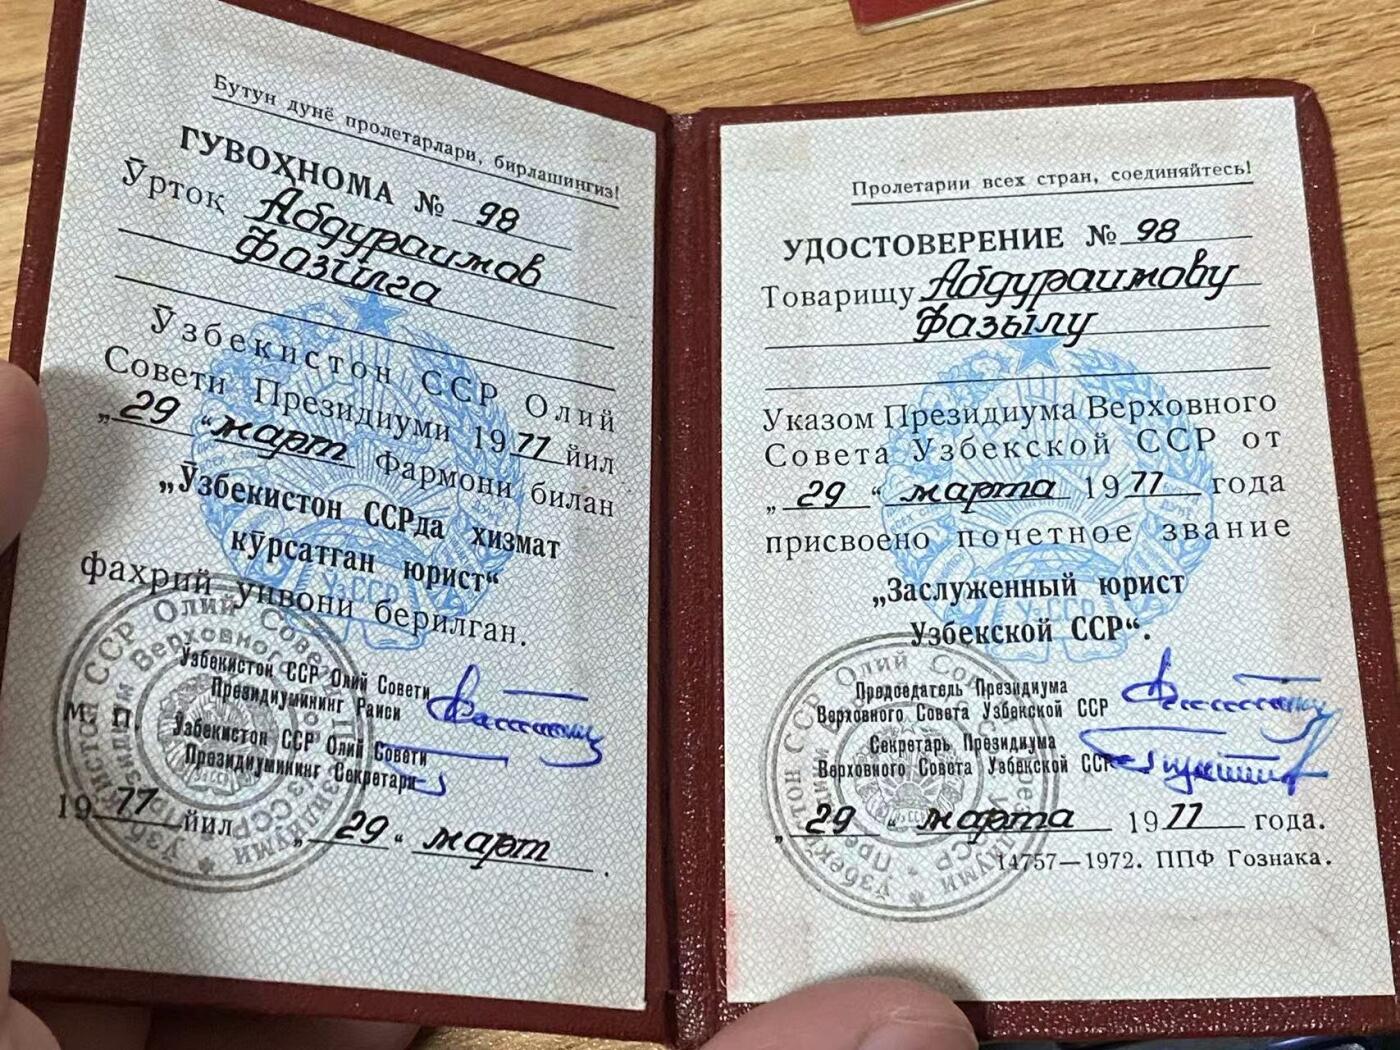 Бутун дунё пролетарлари, бирлашингиз!
ГУВОҲНОМА № 98
Ўртоқ Абдураимов
Фазилга
Ўзбекистон ССР Олий
Совети Президиуми 1977 йил
„29“ март Фармони билан
„Ўзбекистон ССРда хизмат
кўрсатган юрист“
фахрий унвони берилган.
Ўзбекистон ССР Олий Совети
Президиумининг Раиси
М. П.
Ўзбекистон ССР Олий Совети
Президиумининг Секретари
1977 йил „29“ март.
Пролетарии всех стран, соединяйтесь!
УДОСТОВЕРЕНИЕ № 98
Товарищу Абдураимову
Фазылу
Указом Президиума Верховного
Совета Узбекской ССР от
„29“ марта 1977 года
присвоено почетное звание
„Заслуженный юрист
Узбекской ССР“.
Председатель Президиума
Верховного Совета Узбекской ССР
Секретарь Президиума
Верховного Совета Узбекской ССР
„29“ марта 1977 года.
14757—1972. ППФ Гознака.
УзССР
УзССР